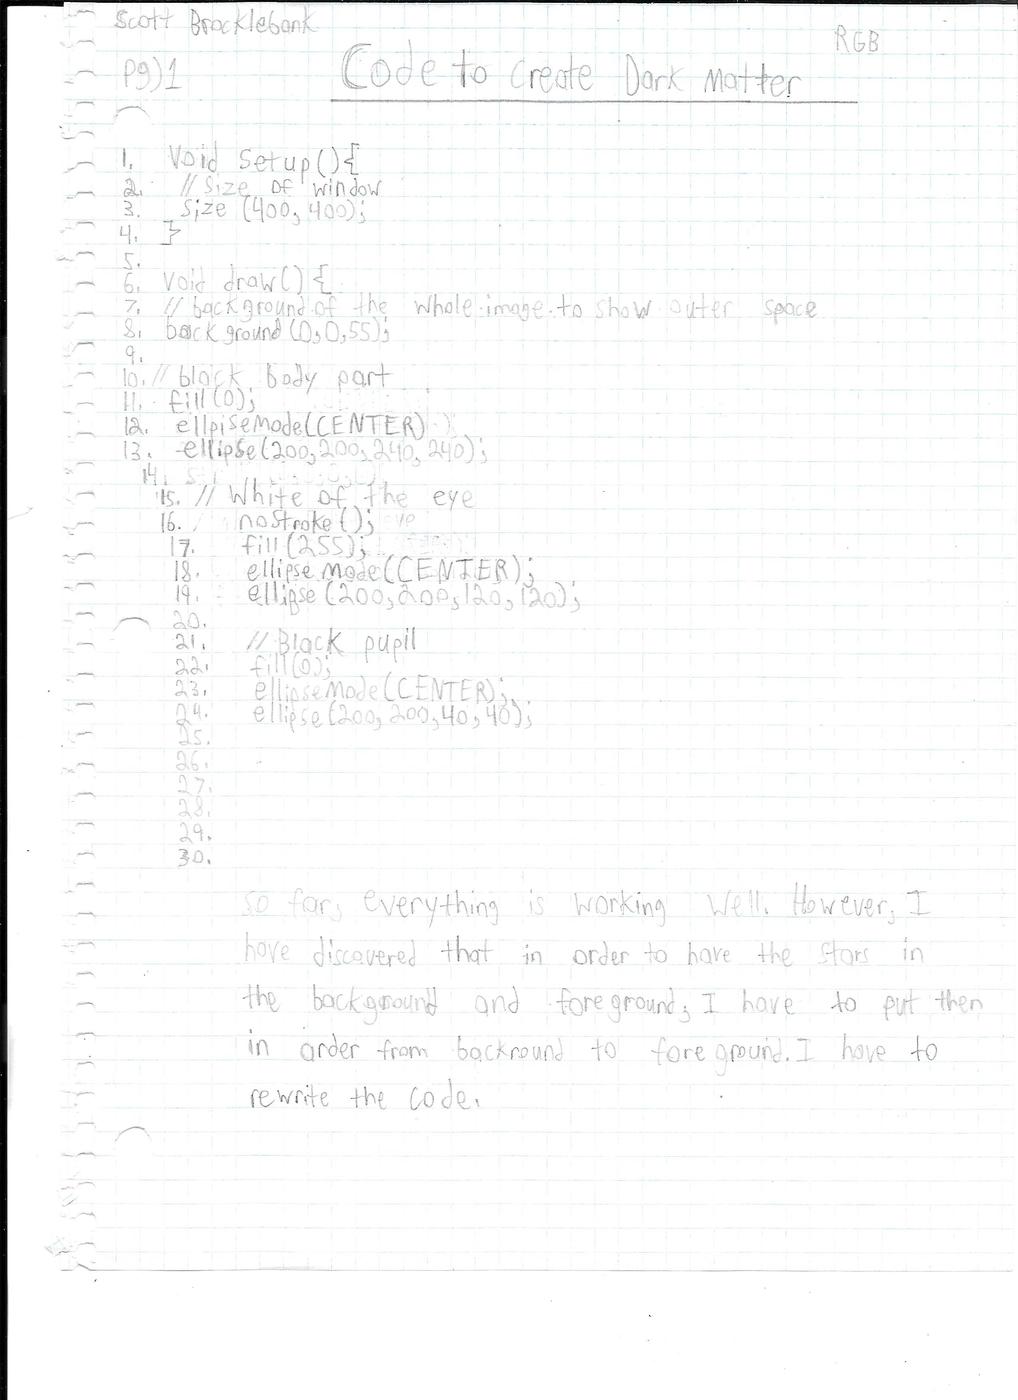 Scott Brocklebank
RGB
Pg)1 Code to Create Dark Matter
1. Void Setup(){
2. // Size of window
3. Size (400, 400);
4. }
5.
6. Void draw() {
7. // background of the whole image to show outer space
8. background (0,0,55);
9.
10. // black body part
11. fill(0);
12. ellpiseMode(CENTER)
13. ellipse(200,200,240, 240);
14.
15. // White of the eye
16. noStroke();
17. fill (255);
18. ellipse mode(CENTER);
19. ellipse (200,200,120,120);
20.
21. // Black pupil
22. fill(0);
23. ellipseMode(CENTER);
24. ellipse(200, 200,40, 40);
25.
26.
27.
28.
29.
30.
So far, everything is working well. However, I
have discovered that in order to have the stars in
the background and foreground, I have to put then
in order from backround to foreground. I have to
rewrite the code.